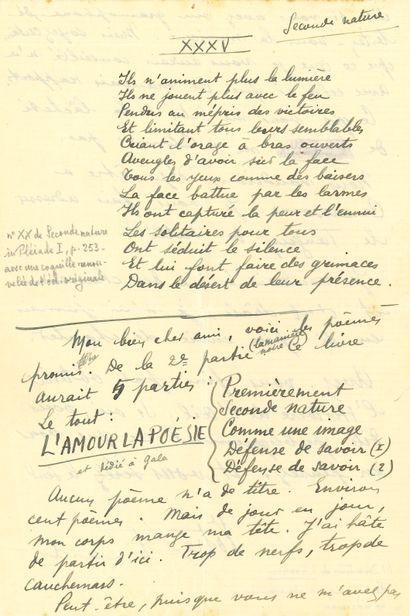 Seconde nature
XXXV
Ils n'animent plus la lumière
Ils ne jouent plus avec le feu
Pendus au mépris des victoires
Et limitant tous leurs semblables
Criant l'orage à bras ouverts
Aveugles d'avoir sur la face
Tous les yeux comme des baisers
La face battue par les larmes
Ils ont capturé la peur et l'ennui
Les solitaires pour tous
Ont séduit le silence
Et lui font faire des grimaces
Dans le désert de leur présence.
n° XX de Seconde nature
in Pléiade I, p. 253 -
avec une coquille renou-
velée de l'éd. originale
Mon bien cher ami, voici les poèmes
promis. De la 2e partie (la manière noire) Ce livre
aurait 5 parties :
Le tout :
L'AMOUR LA POÉSIE
et dédié à Gala
Premièrement
Seconde nature
Comme une image
Défense de savoir (1)
Défense de savoir (2)
Aucun poème n'a de titre. Environ
cent poèmes. Mais de jour en jour,
mon corps mange ma tête. J'ai hâte
de partir d'ici. Trop de nerfs, trop de
cauchemars.
Peut-être, puisque vous ne m'avez pas